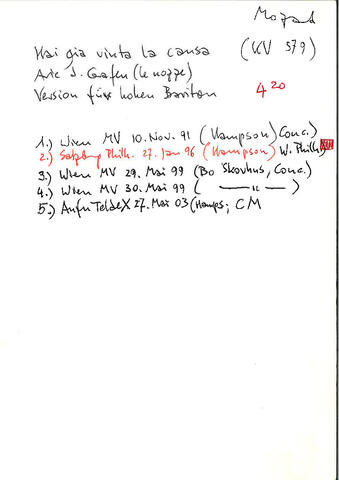 Mozart
Hai gia vinta la causa (KV 579)
Arie d. Grafen (le nozze)
Version für hohen Bariton 4 20
1.) Wien MV 10. Nov. 91 (Hampson) Conc.)
2.) Salzburg Philh. 27. Jan 96 (Hampson) W. Philh.)
3.) Wien MV 29. Mai 99 (Bo Skovhus, Conc.)
4.) Wien MV 30. Mai 99 ( —— " —— )
5.) Aufn TeldeX 27. Mai 03 (Hamps; CM